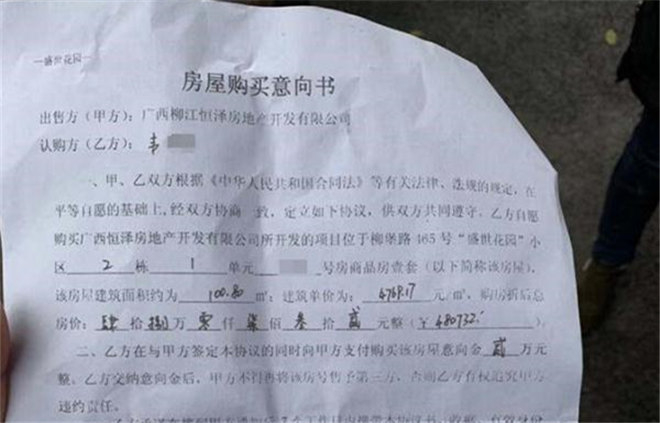 —盛世花园—
房屋购买意向书
出售方（甲方）：广西柳江恒泽房地产开发有限公司
认购方（乙方）：韦
一、甲、乙双方根据《中华人民共和国合同法》等有关法律、法规的规定，在
平等自愿的基础上,经双方协商一致，定立如下协议，供双方共同遵守。乙方自愿
购买广西恒泽房地产开发有限公司所开发的项目位于柳堡路465号“盛世花园”小
区 2 栋 1 单元 号房商品房壹套（以下简称该房屋），
该房屋建筑面积约为 100.80 m²；建筑单价为： 4769.17 元/m²，购房折后总
房价：肆拾捌万零仟柒佰叁拾贰元整（￥480732.）
二、乙方在与甲方签定本协议的同时向甲方支付购买该房屋意向金 贰 万元
整。乙方交纳意向金后，甲方不得再将该房号售予第三方，否则乙方有权追究甲方
违约责任。